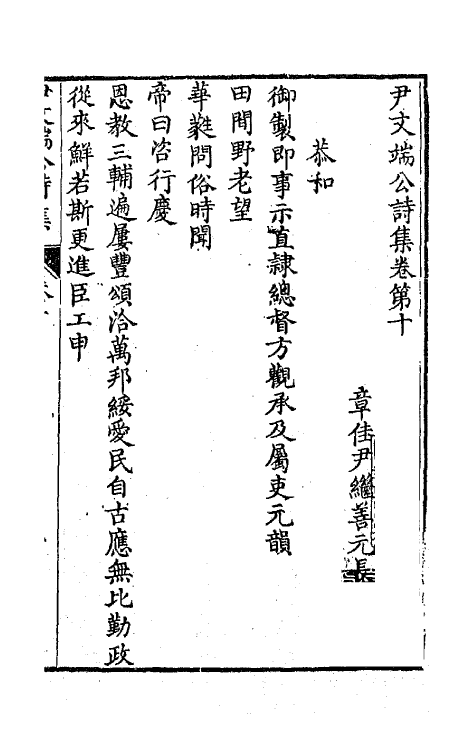 尹文端公詩集卷第十
章佳尹繼善元長
恭和
御製即事示直隸總督方觀承及屬吏元韻
田間野老望
華蕤問俗時聞
帝曰咨行慶
恩教三輔遍屢豐頌洽萬邦綏愛民自古應無比勤政
從來鮮若斯更進臣工申
尹文端公詩集